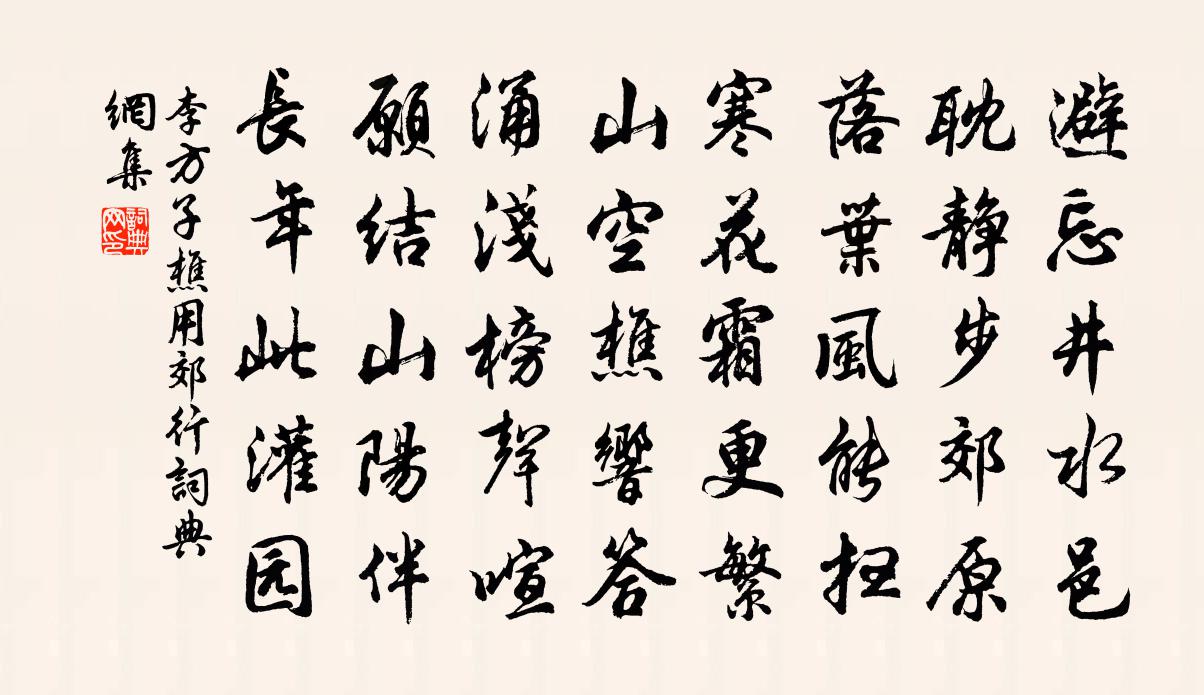 避忘井水邑
耽静步郊原
落葉風能扫
寒花霜更繁
山空樵響答
涌淺榜聲喧
願結山陽伴
長年此灌园
李方子樵用郊行詞典
網集
詞典网印